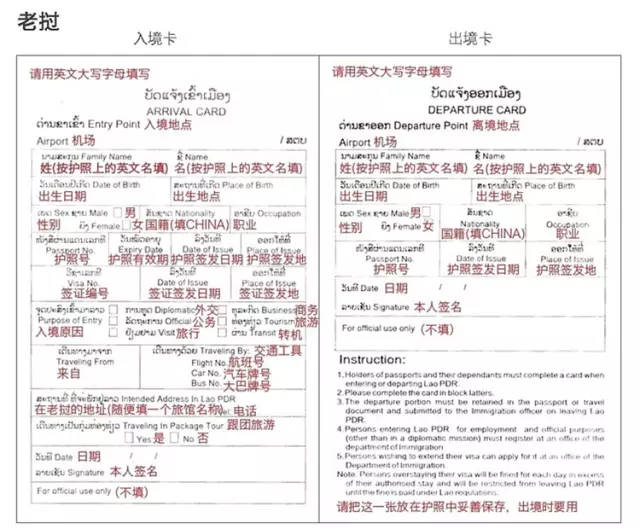 老挝
入境卡
请用英文大写字母填写
ບັດແຈ້ງເຂົ້າເມືອງ
ARRIVAL CARD
ດ່ານຂາເຂົ້າ Entry Point 入境地点
Airport 机场 / ສຕບ
ນາມສະກຸນ Family Name ຊື່ Name
姓(按护照上的英文名填) 名(按护照上的英文名填)
ວັນເດືອນປີເກີດ Date of Birth ສະຖານທີ່ເກີດ Place of Birth
出生日期 出生地点
ເພດ Sex ຊາຍ Male 男 ສັນຊາດ Nationality ອາຊີບ Occupation
性别 ຍິງ Female 女 国籍(填CHINA) 职业
ໜັງສືຜ່ານແດນເລກທີ ວັນໝົດອາຍຸ ລົງວັນທີ ອອກໃຫ້ທີ່
Passport No. Expiry Date Date of Issue Place of Issue
护照号 护照有效期 护照签发日期 护照签发地
ວີຊາເລກທີ ລົງວັນທີ ອອກໃຫ້ທີ່
Visa No. Date of Issue Place of Issue
签证编号 签证签发日期 签证签发地
ຈຸດປະສົງເຂົ້າມາລາວ ການທູດ Diplomatic 外交 ທຸລະກິດ Business 商务
Purpose of Entry ລັດຖະການ Official 公务 ທ່ອງທ່ຽວ Tourism 旅游
入境原因 ຢ້ຽມຢາມ Visit 旅行 ຜ່ານ Transit 转机
ເດີນທາງມາຈາກ ເດີນທາງດ້ວຍ Traveling By: 交通工具
Traveling From Flight No. 航班号
来自 Car No. 汽车牌号
Bus No. 大巴牌号
ສະຖານທີ່ ທີ່ຈະພັກຢູ່ລາວ Intended Address In Lao PDR
在老挝的地址(随便填一个旅馆名称) Tel: 电话
ເດີນທາງເປັນກຸ່ມທ່ອງທ່ຽວ Traveling In Package Tour 跟团旅游
Yes 是 No 否
ວັນທີ Date 日期 / /
ລາຍເຊັນ Signature 本人签名
For official use only (不填)
出境卡
请用英文大写字母填写
ບັດແຈ້ງອອກເມືອງ
DEPARTURE CARD
ດ່ານຂາອອກ Departure Point 离境地点
Airport 机场 / ສຕບ
ນາມສະກຸນ Family Name ຊື່ Name
姓(按护照上的英文名填) 名(按护照上的英文名填)
ວັນເດືອນປີເກີດ Date of Birth ສະຖານທີ່ເກີດ Place of Birth
出生日期 出生地点
ເພດ Sex ຊາຍ Male 男 ສັນຊາດ ອາຊີບ
性别 ຍິງ Female 女 Nationality Occupation
国籍(填CHINA) 职业
ໜັງສືຜ່ານແດນເລກທີ ລົງວັນທີ ອອກໃຫ້ທີ່
Passport No. Date of Issue Place of Issue
护照号 护照签发日期 护照签发地
ວັນທີ Date 日期 / /
ລາຍເຊັນ Signature 本人签名
For official use only (不填)
Instruction:
1.Holders of passports and their dependants must complete a card when
entering or departing Lao PDR.
2.Please complete the card in block letters.
3.The departure portion must be retained in the passport or travel
document and submitted to the Immigration officer on leaving Lao
PDR.
4.Persons entering Lao PDR for employment and official purposes
(other than in a diplomatic mission) must register at an office of the
department of Immigration.
5.Persons wishing to extend their visa can apply for it at an office of the
Department of Immigration.
Note: Persons overstaying their visa will be fined for each day in excess
of their authorised stay and will be restricted from leaving Lao PDR
until the fine is paid under Lao regulations.
请把这一张放在护照中妥善保存，出境时要用